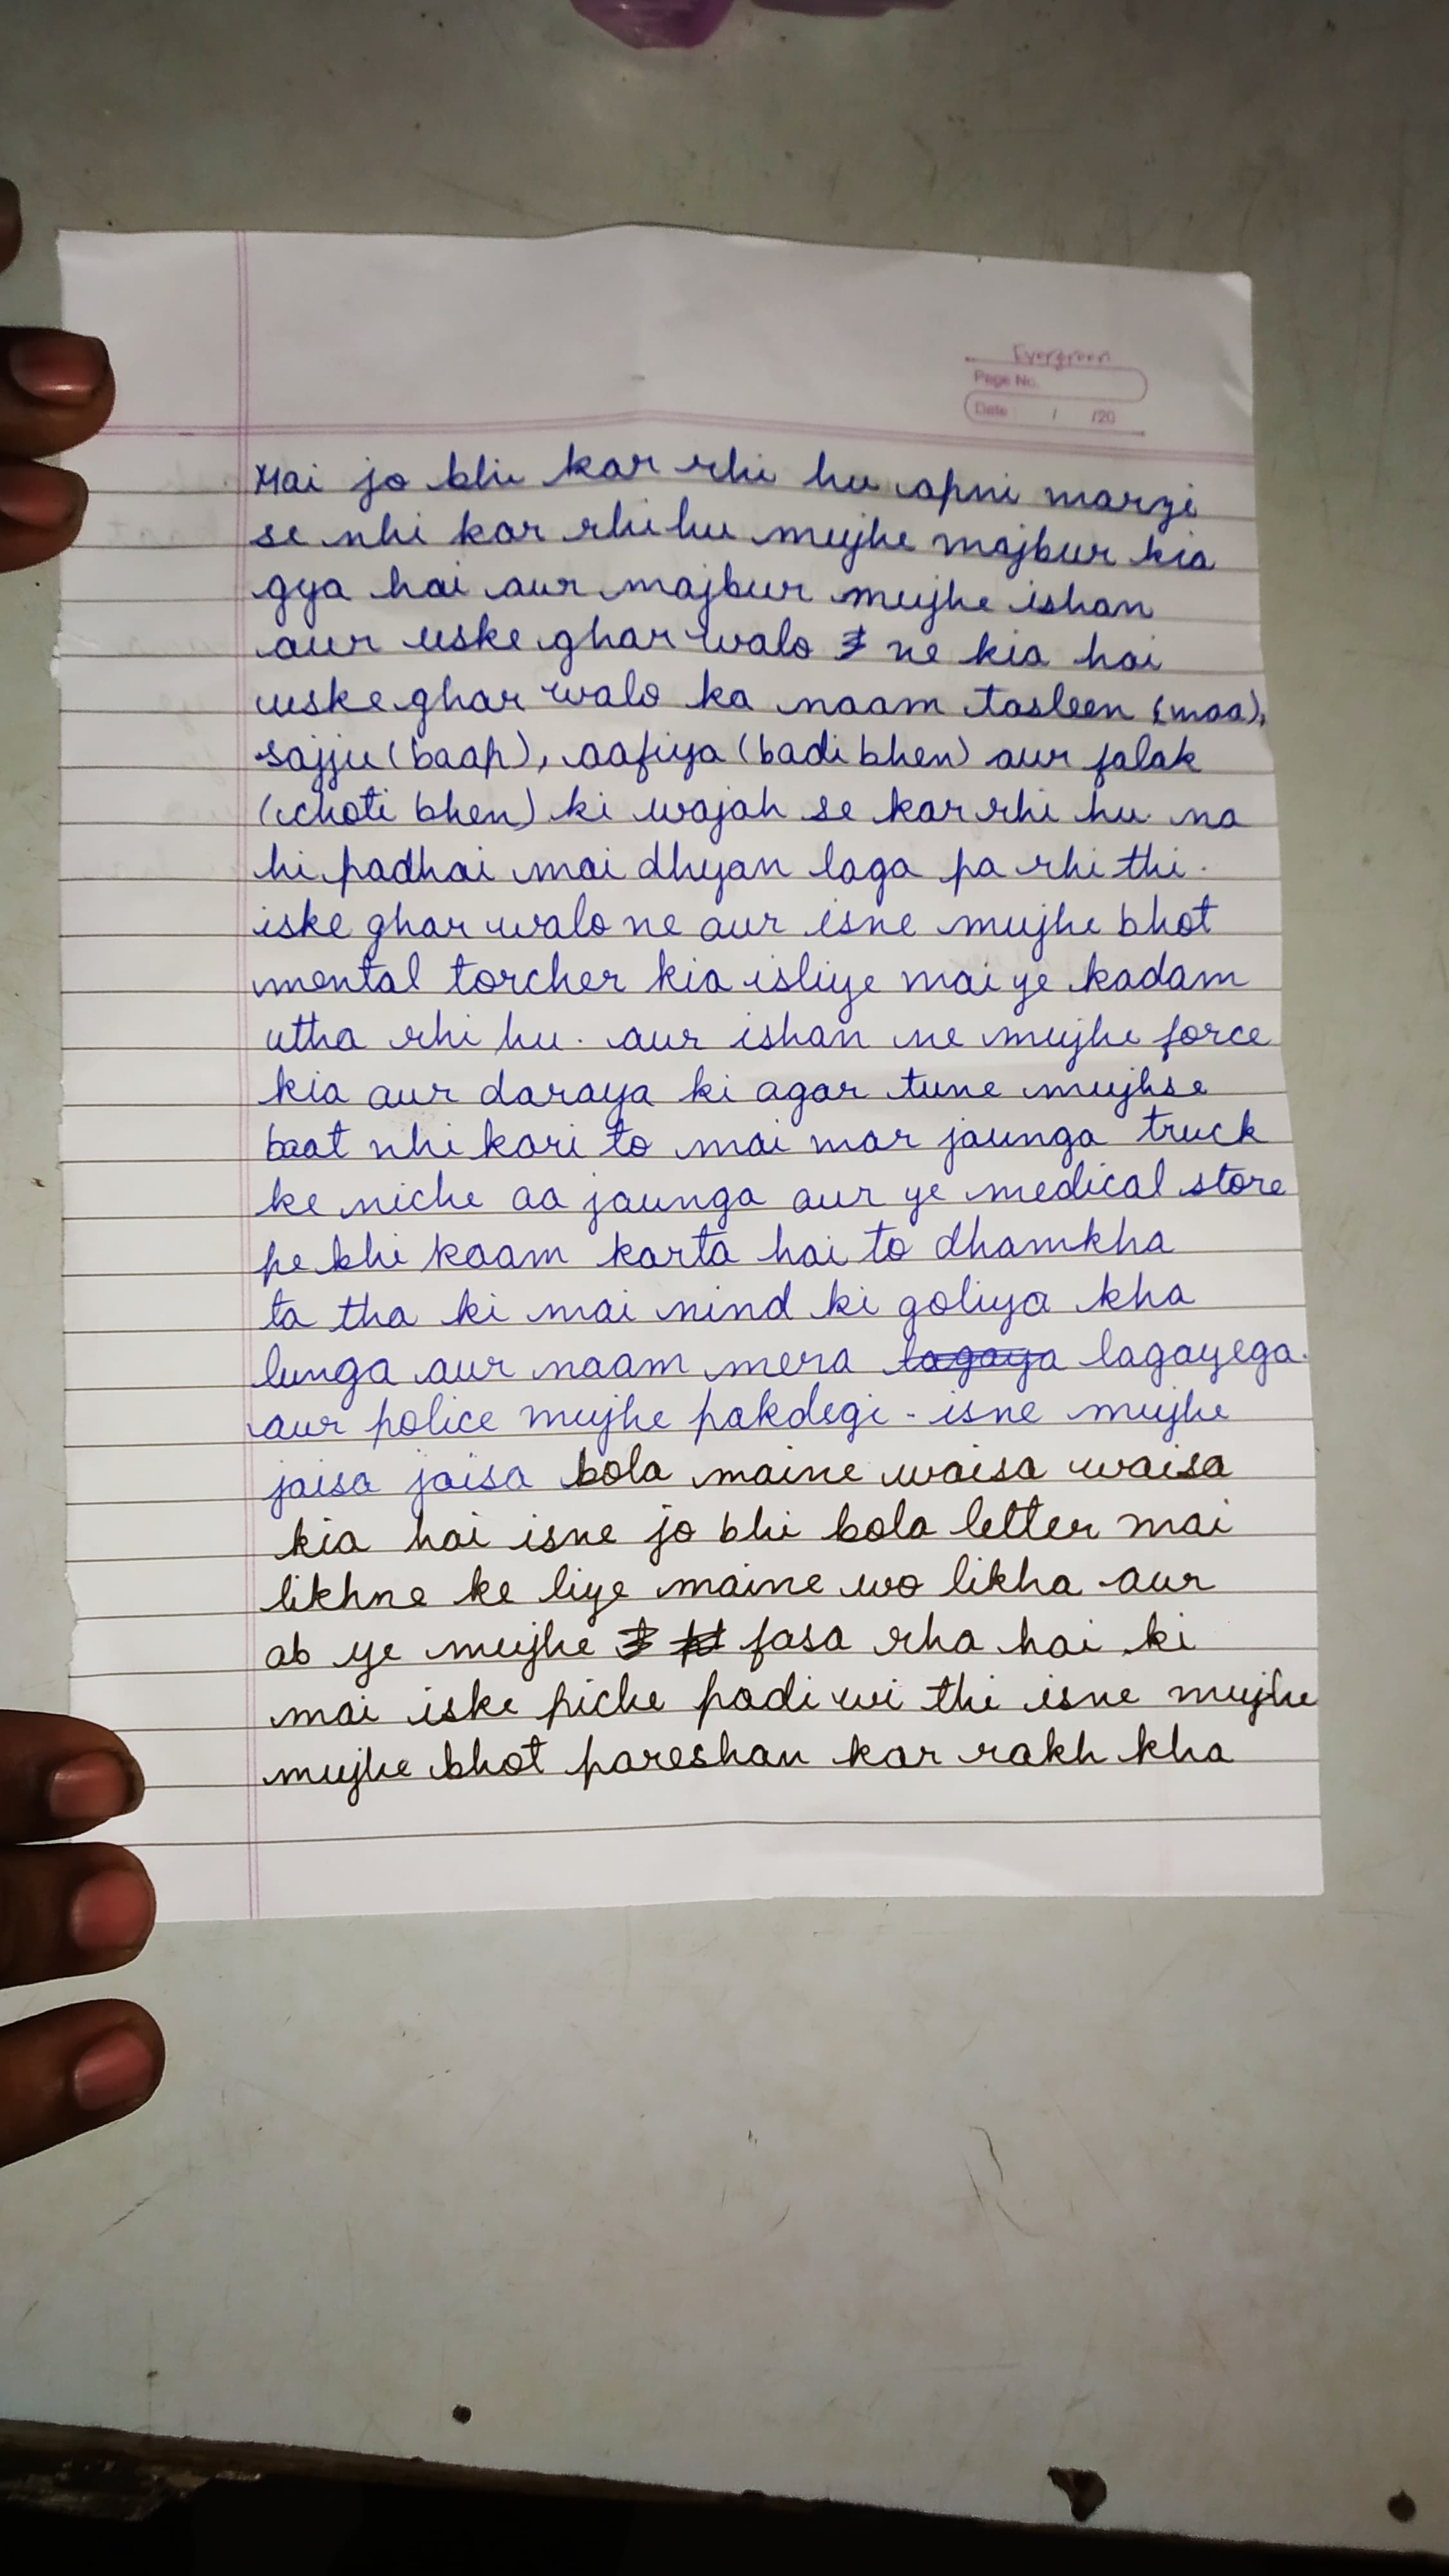 Evergreen
Page No.
Date / /20
Mai jo bhi kar rhi hu apni marzi
se nhi kar rhi hu mujhe majbur kia
gya hai aur majbur mujhe ishan
aur uske ghar walo ne kia hai
uske ghar walo ka naam tasleen (maa),
sajju (baap), aafiya (badi bhen) aur falak
(choti bhen) ki wajah se kar rhi hu na
hi padhai mai dhyan laga pa rhi thi.
iske ghar walo ne aur isne mujhe bhot
mental torcher kia isliye mai ye kadam
utha rhi hu. aur ishan ne mujhe force
kia aur daraya ki agar tune mujhse
baat nhi kari to mai mar jaunga truck
ke niche aa jaunga aur ye medical store
pe bhi kaam karta hai to dhamkha
ta tha ki mai nind ki goliya kha
lunga aur naam mera lagaya lagayega.
aur police mujhe pakdegi - isne mujhe
jaisa jaisa bola maine waisa waisa
kia hai isne jo bhi bola letter mai
likhne ke liye maine wo likha aur
ab ye mujhe fasa rha hai ki
mai iske piche padi wi thi isne mujhe
mujhe bhot pareshan kar rakh kha